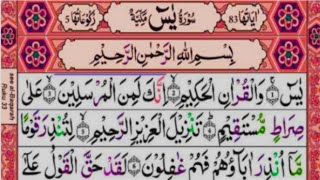 اٰیَاتُهَا 83 سُوْرَةُ یٰسٓ مَكِّیَّةٌ رُكُوْعَاتُهَا 5
بِسْمِ اللّٰهِ الرَّحْمٰنِ الرَّحِیْمِ
یٰسٓ وَالْقُرْاٰنِ الْحَكِیْمِ اِنَّكَ لَمِنَ الْمُرْسَلِیْنَ عَلٰى
صِرَاطٍ مُّسْتَقِیْمٍ تَنْزِیْلَ الْعَزِیْزِ الرَّحِیْمِ لِتُنْذِرَ قَوْمًا
مَّاۤ اُنْذِرَ اٰبَآؤُهُمْ فَهُمْ غٰفِلُوْنَ لَقَدْ حَقَّ الْقَوْلُ عَلٰۤى